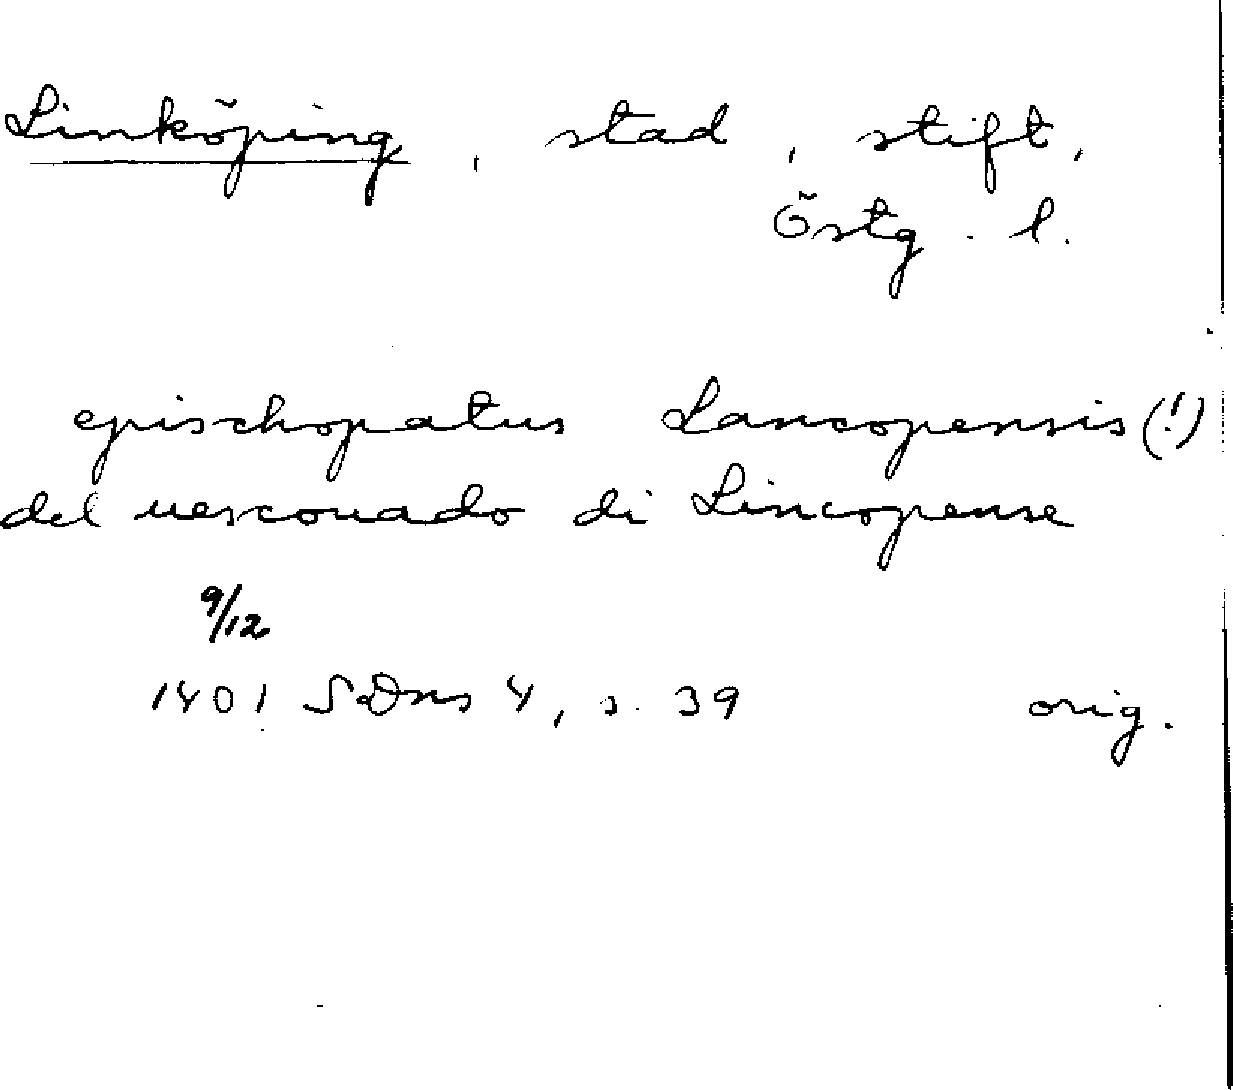 Linköping, stad, stift,
Östg. l.
epischopatus Lancopensis (!)
del uescouado di Lincopense
9/12
1401 SDns 4, s. 39 orig.